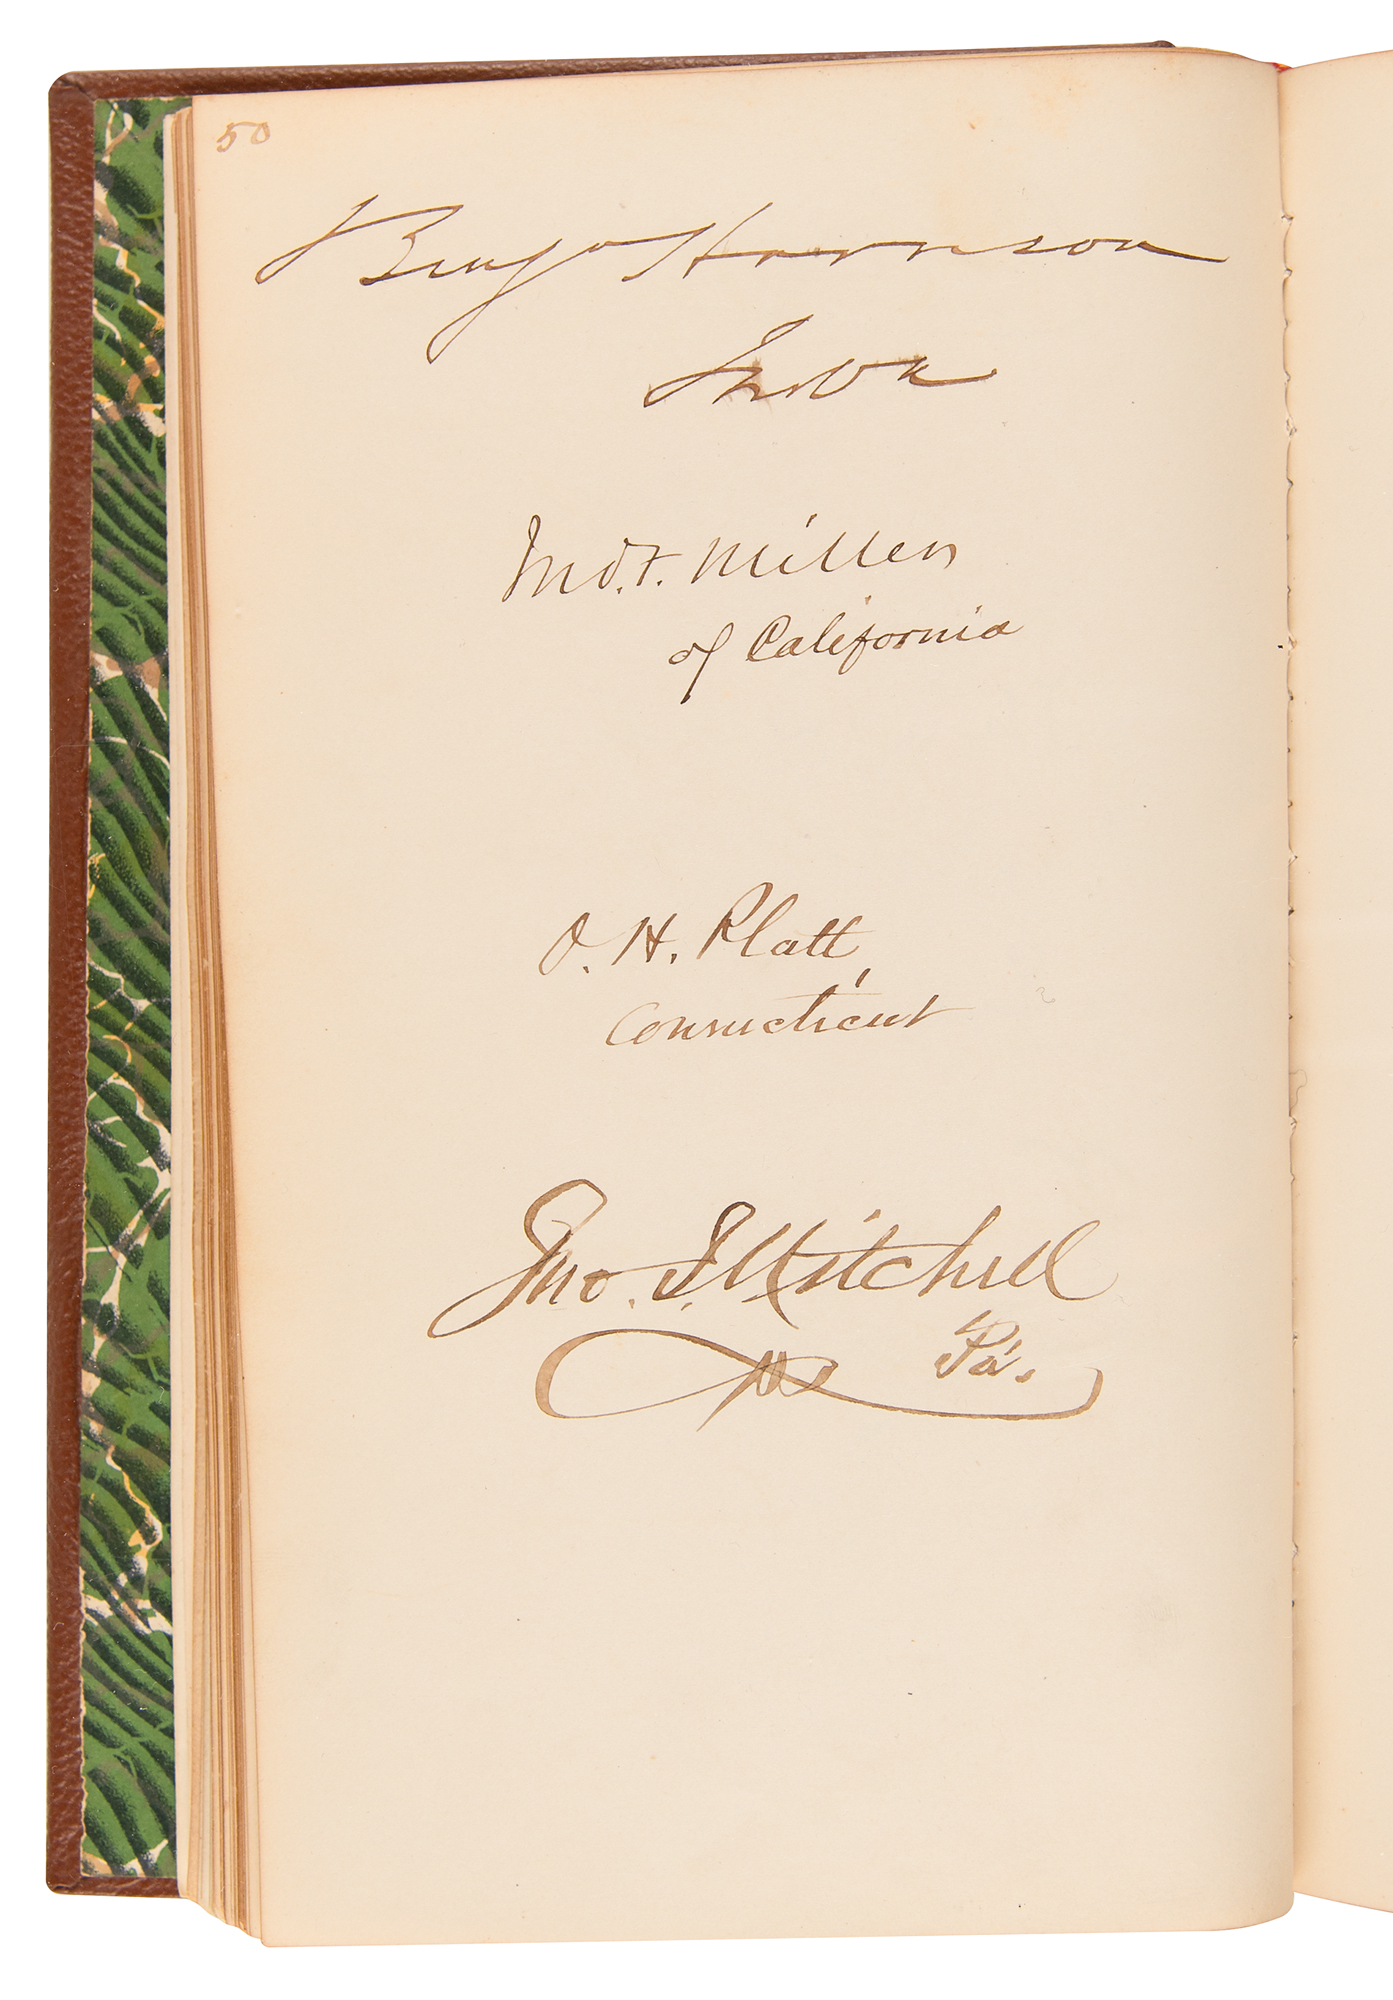 50
Benja Harrison
Inda
Jno. F. Miller
of California
O. H. Platt,
Connecticut
Jno. I. Mitchell
Pa.